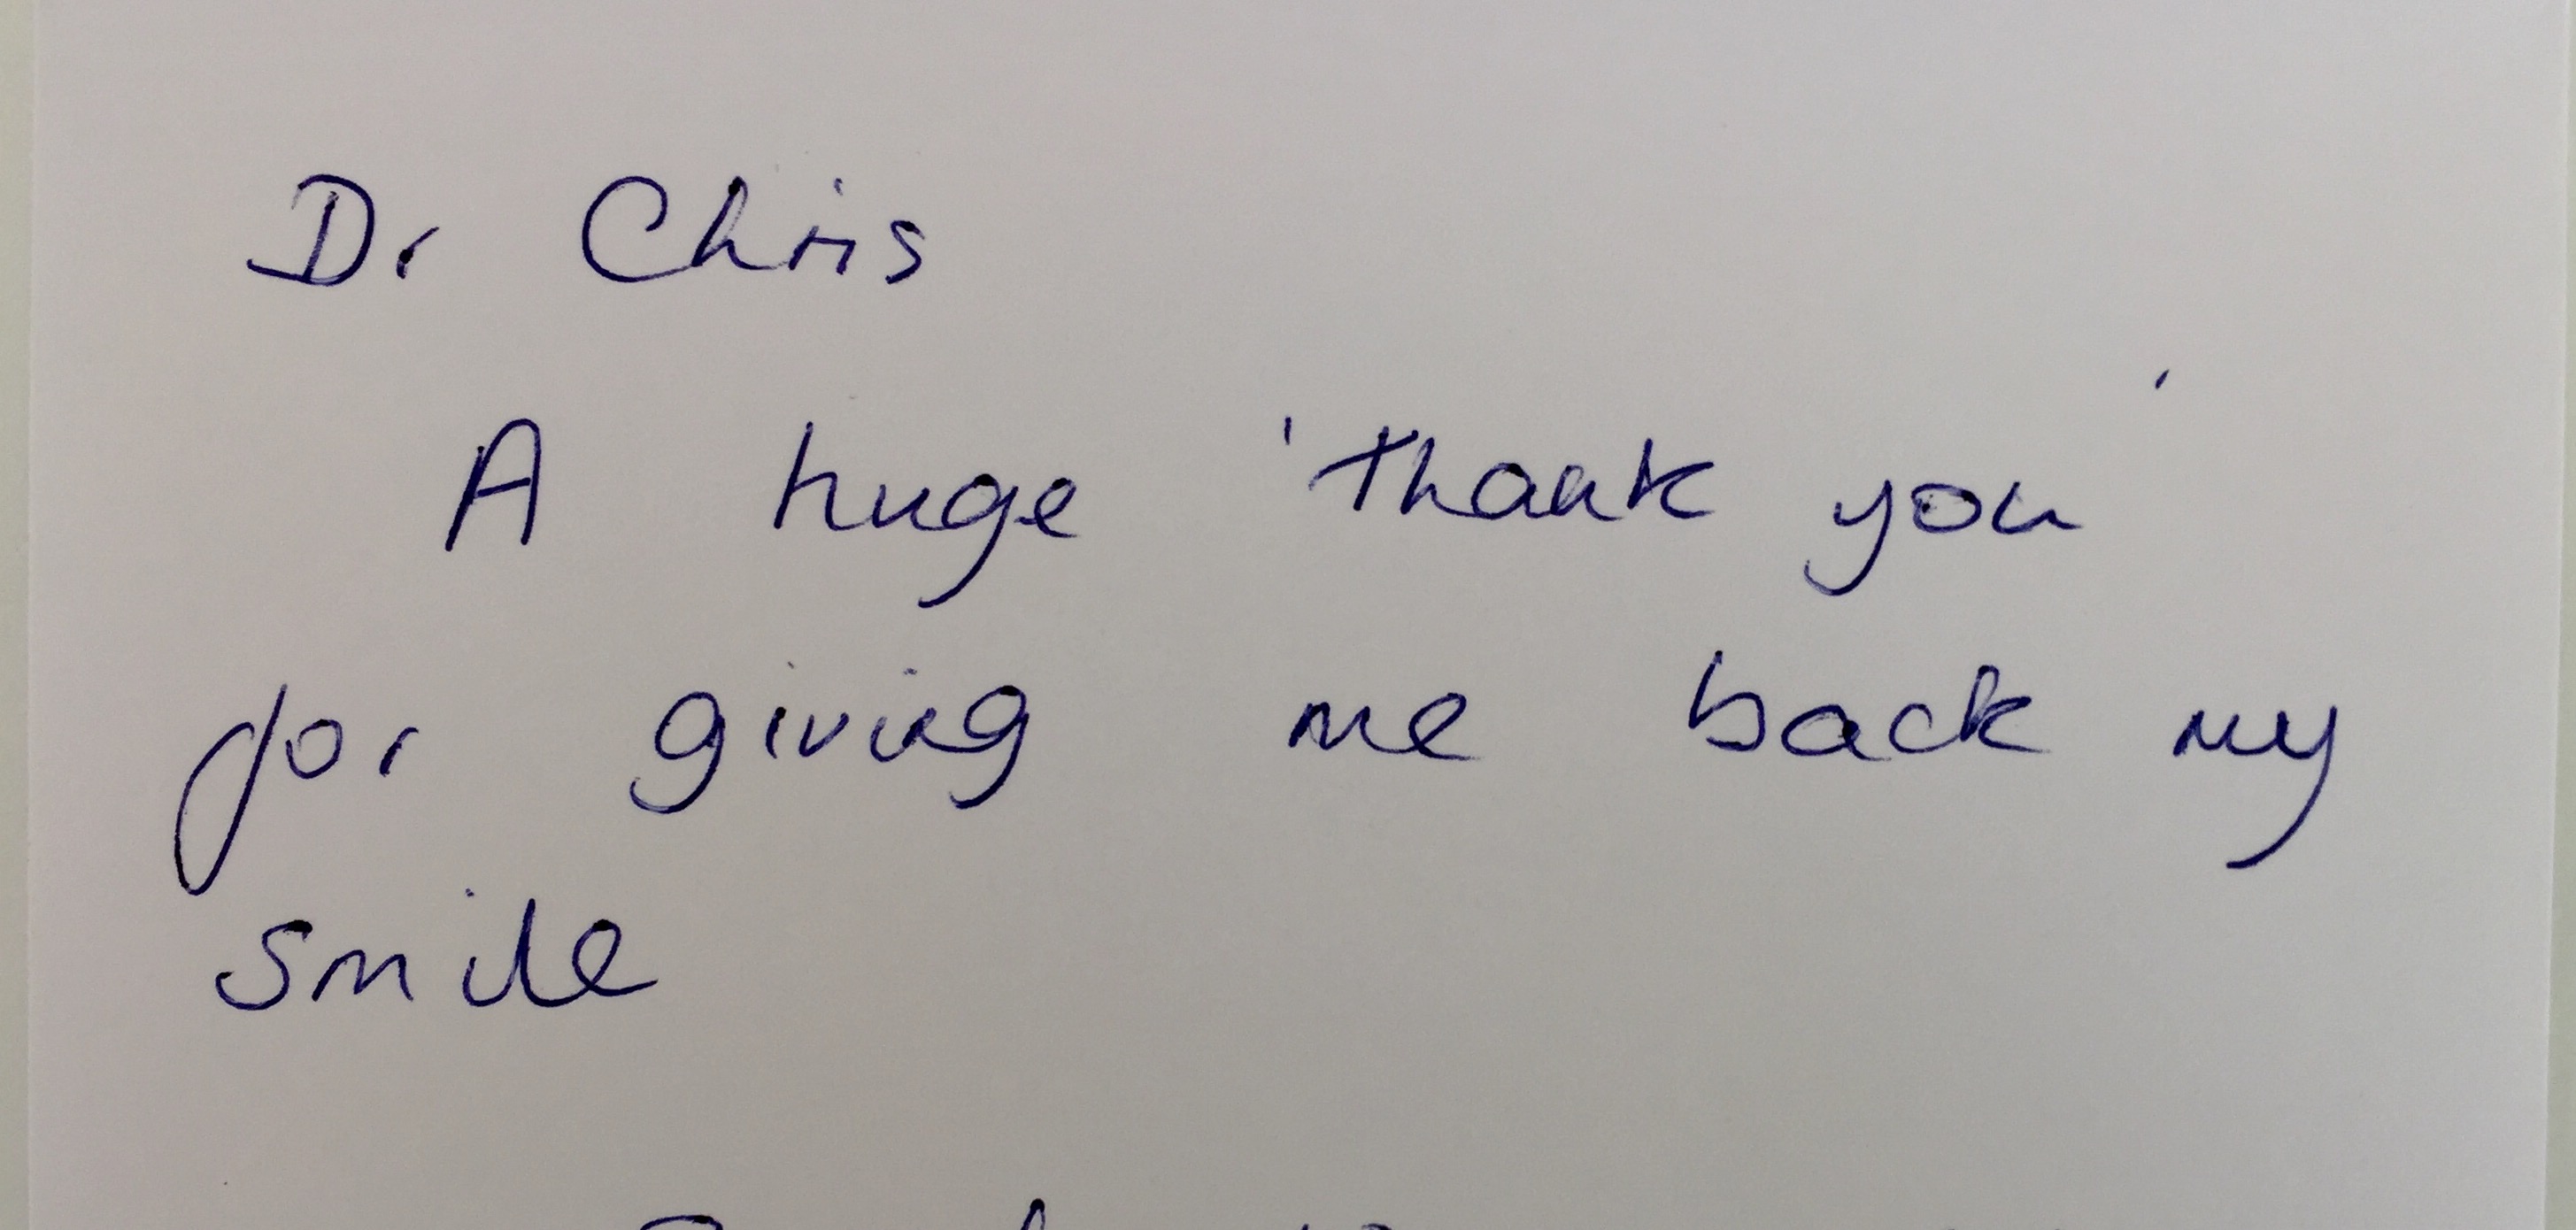 Dr Chris
A huge 'thank you'
for giving me back my
smile